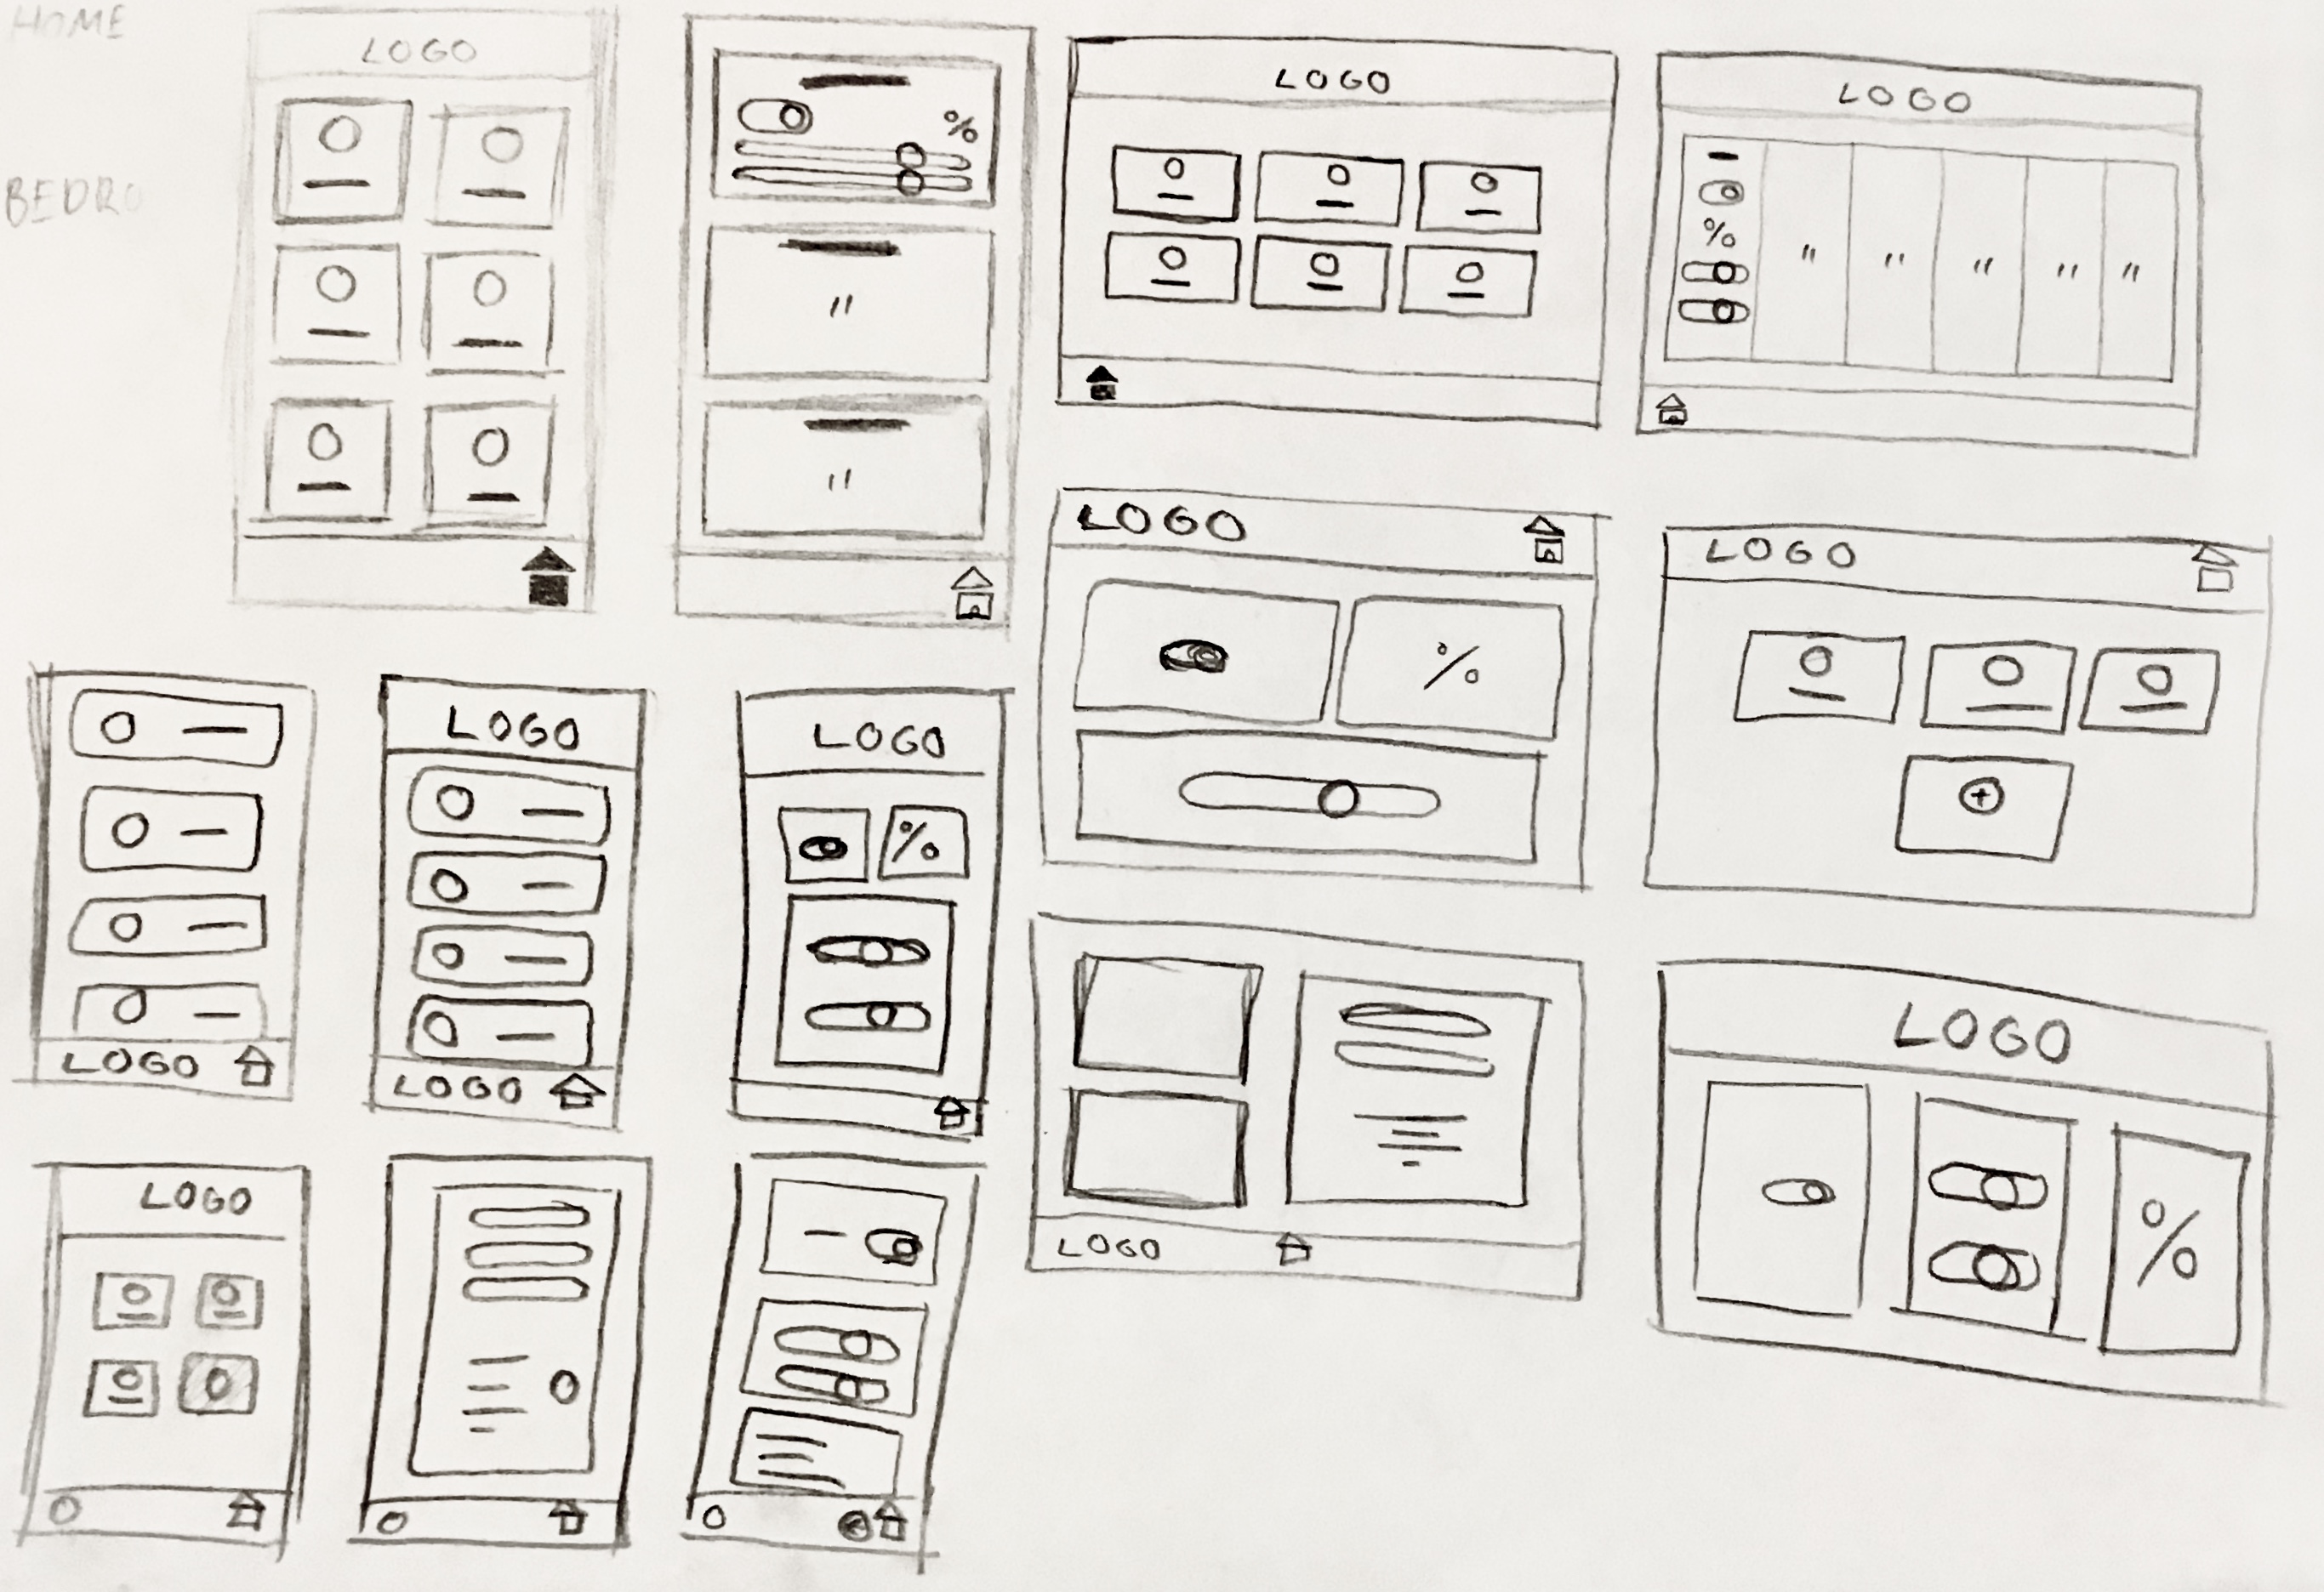 HOME
LOGO
BEDRO
%
"
"
LOGO
LOGO
%
" " " " "
LOGO
%
LOGO
+
LOGO
LOGO
LOGO
%
LOGO
LOGO
LOGO
LOGO
%
LOGO